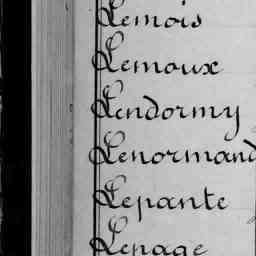 Lemois
Lemoux
Lendormy
Lenormand
Lepante
Lepage